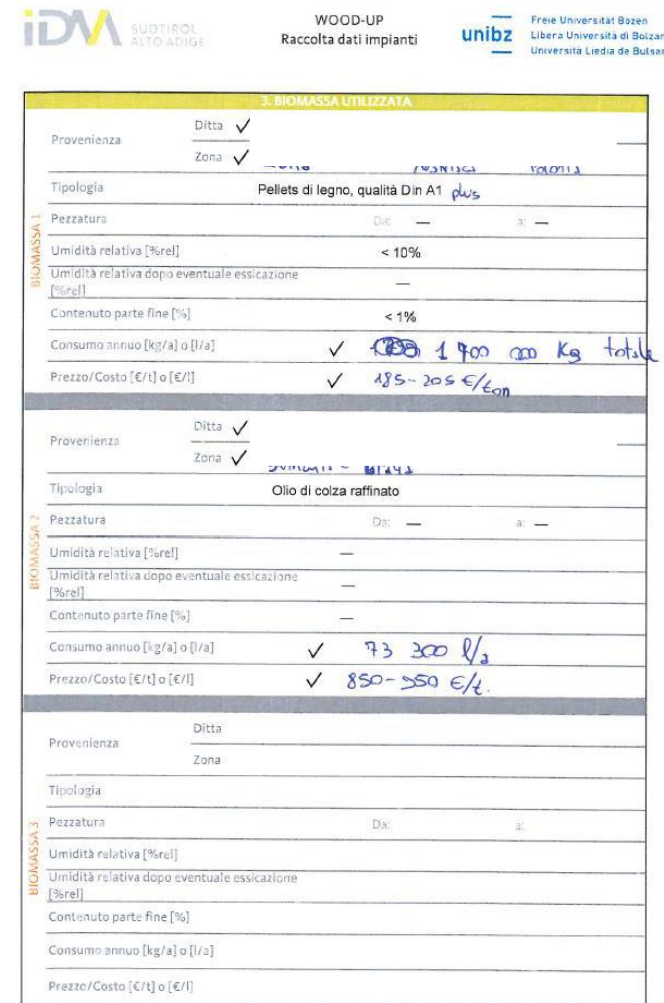 iDM SÜDTIROL
ALTO ADIGE
WOOD-UP
Raccolta dati impianti
unibz
Freie Universität Bozen
Libera Università di Bolzan
Università Liedia de Bulsan
3. BIOMASSA UTILIZZATA
BIOMASSA 1
Provenienza
Ditta ✓
Zona ✓
Tipologia Pellets di legno, qualità Din A1 plus
Pezzatura Da: — a: —
Umidità relativa [%rel] < 10%
Umidità relativa dopo eventuale essicazione
[%rel] —
Contenuto parte fine [%] < 1%
Consumo annuo [kg/a] o [l/a] ✓ 1 700 000 Kg totale
Prezzo/Costo [€/t] o [€/l] ✓ 185-205 €/ton
BIOMASSA 2
Provenienza
Ditta ✓
Zona ✓
Tipologia Olio di colza raffinato
Pezzatura Da: — a: —
Umidità relativa [%rel] —
Umidità relativa dopo eventuale essicazione
[%rel] —
Contenuto parte fine [%] —
Consumo annuo [kg/a] o [l/a] ✓ 73 300 l/a
Prezzo/Costo [€/t] o [€/l] ✓ 850-950 €/t.
BIOMASSA 3
Provenienza
Ditta
Zona
Tipologia
Pezzatura Da: a:
Umidità relativa [%rel]
Umidità relativa dopo eventuale essicazione
[%rel]
Contenuto parte fine [%]
Consumo annuo [kg/a] o [l/a]
Prezzo/Costo [€/t] o [€/l]